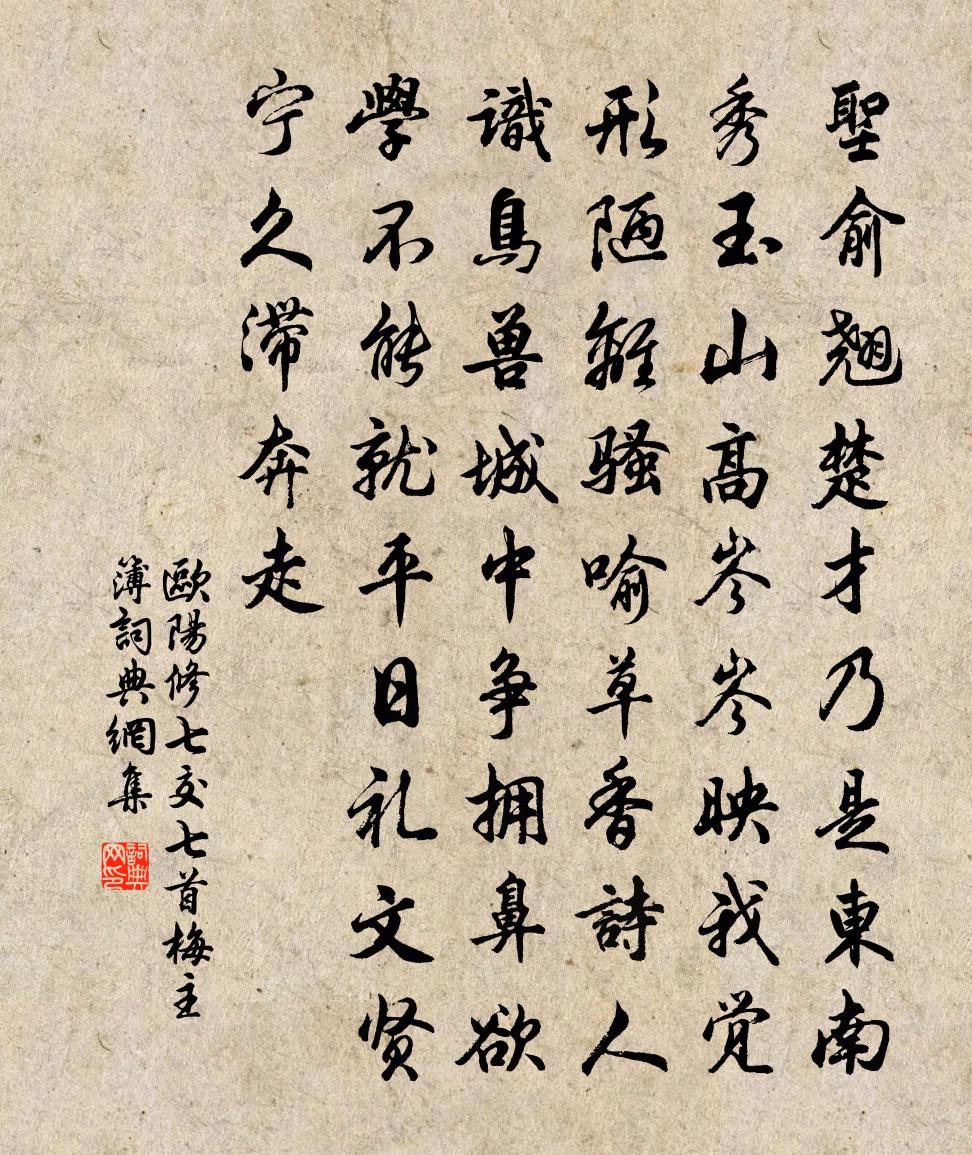 聖俞翹楚才乃是東南
秀玉山高岑岑映我觉
形陋離騷喻草香詩人
識鳥兽城中争拥鼻欲
學不能就平日礼文贤
宁久滞奔走
歐陽修七交七首梅主
簿詞典網集
詞典
网印